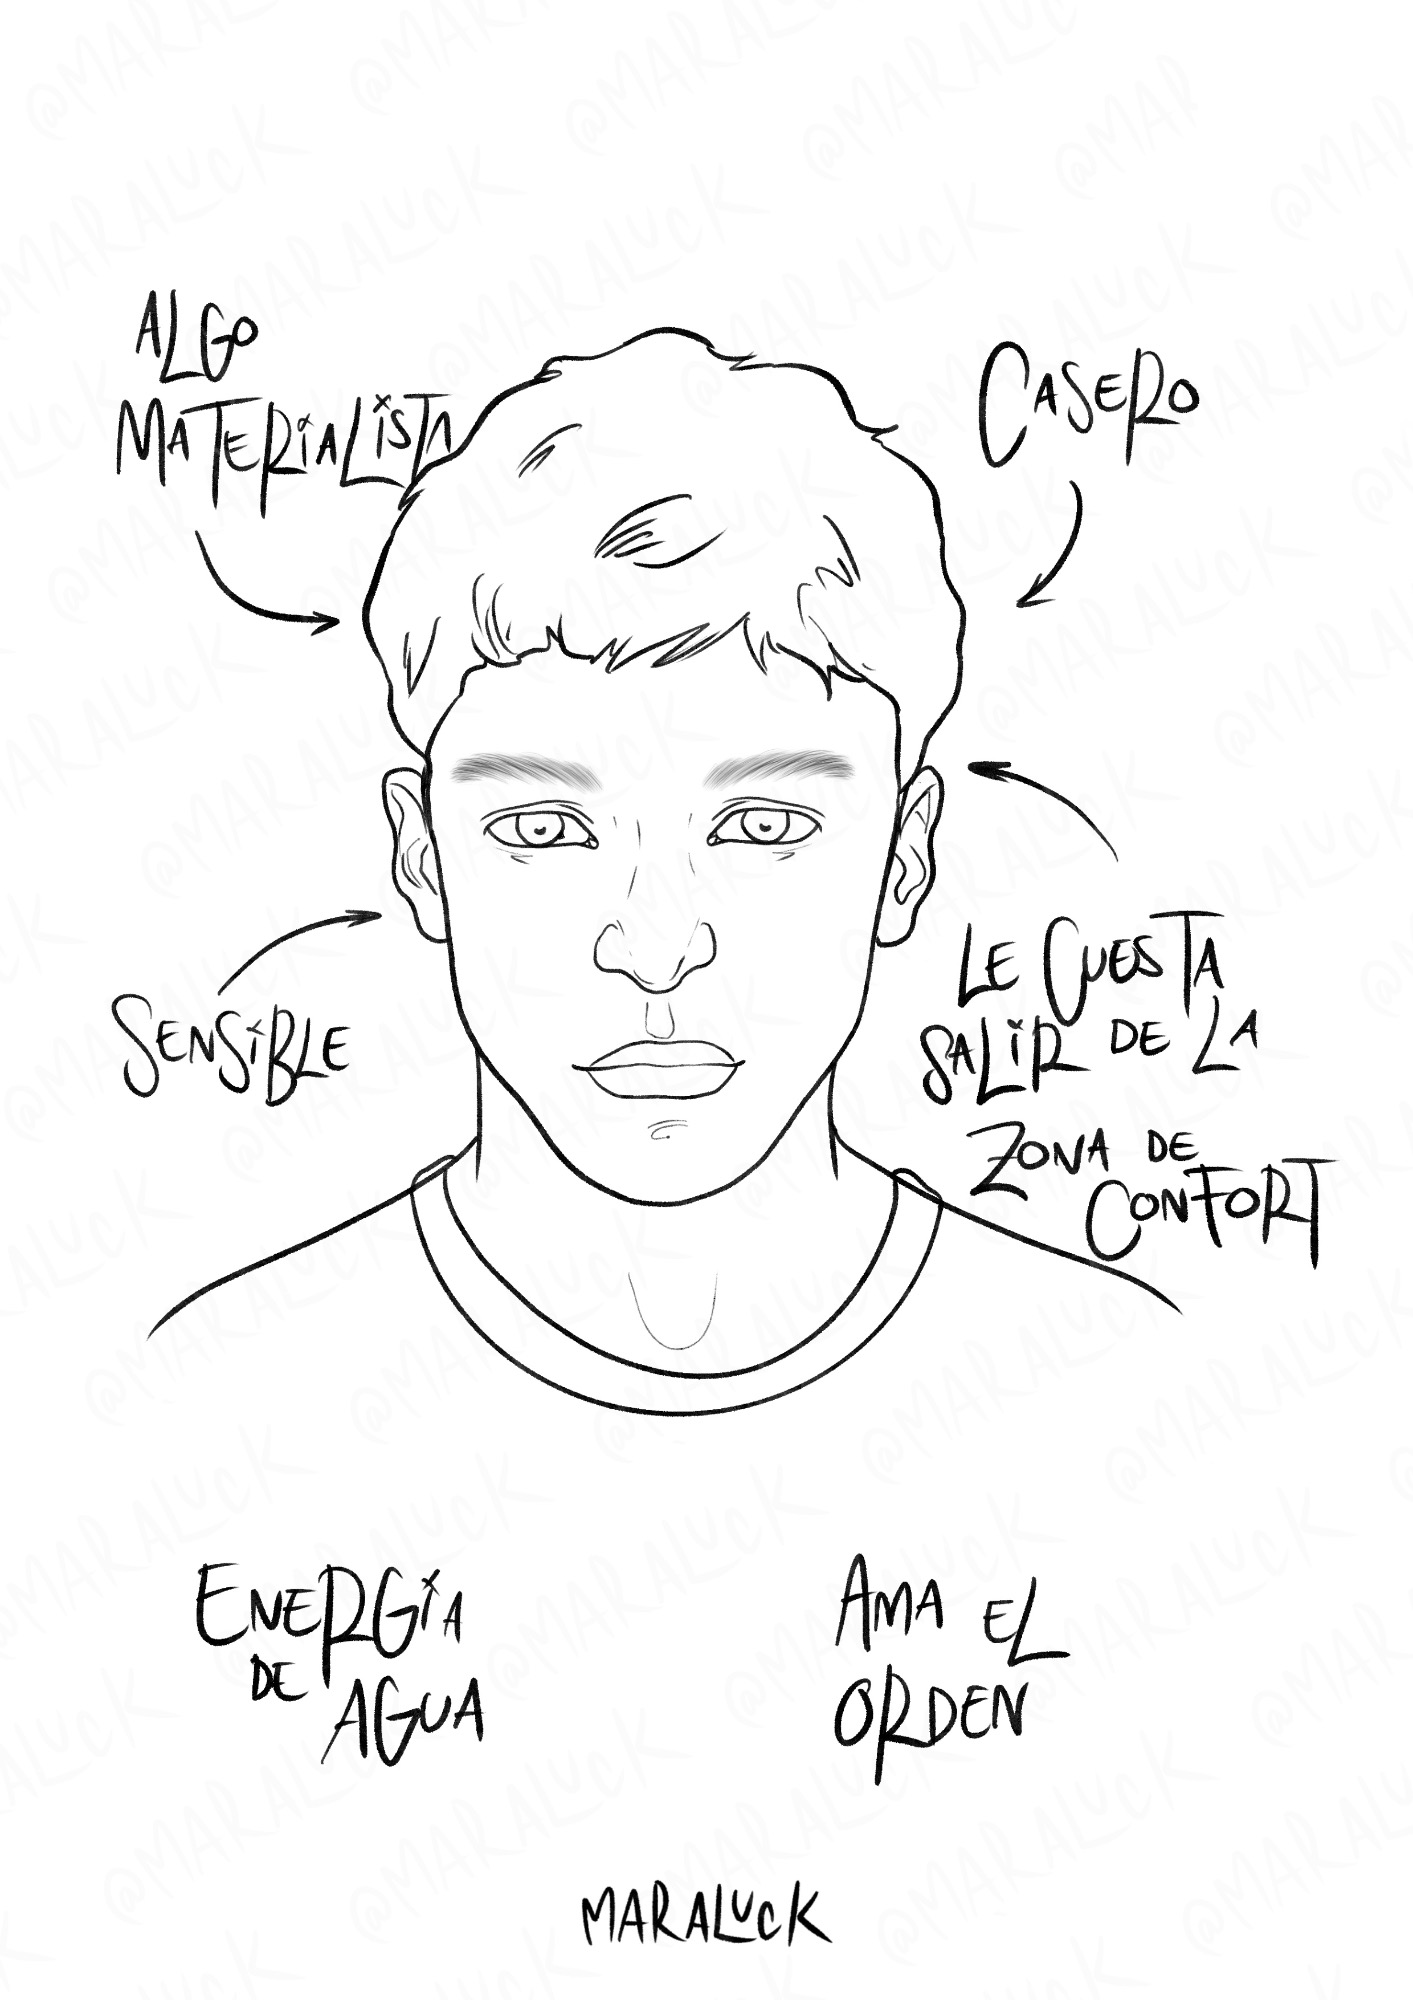 ALGO
MATERIALISTA
CASERO
SENSIBLE
LE CUESTA
SALIR DE LA
ZONA DE
CONFORT
ENERGÍA
DE AGUA
AMA EL
ORDEN
MARALUCK
@MARALUCK